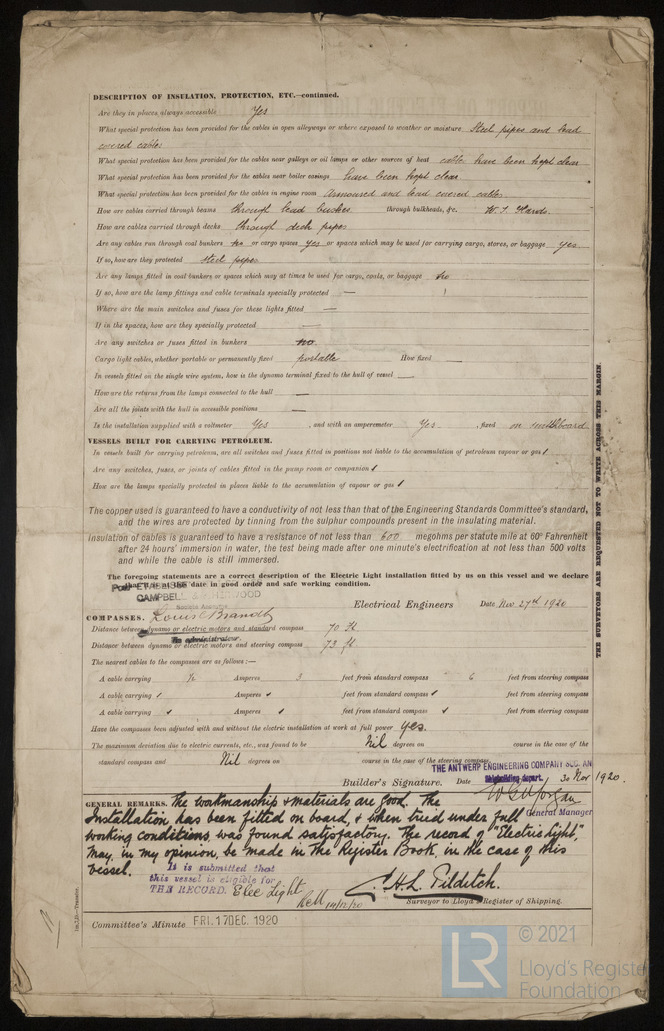 DESCRIPTION OF INSULATION, PROTECTION, ETC.—continued.
Are they in places always accessible Yes
What special protection has been provided for the cables in open alleyways or where exposed to weather or moisture Steel pipes and lead
covered cables
What special protection has been provided for the cables near galleys or oil lamps or other sources of heat cable have been kept clear
What special protection has been provided for the cables near boiler casings have been kept clear
What special protection has been provided for the cables in engine room Armoured and lead covered cables
How are cables carried through beams through lead bushes through bulkheads, &c. W. T. Glands.
How are cables carried through decks through deck pipes
Are any cables run through coal bunkers no or cargo spaces yes or spaces which may be used for carrying cargo, stores, or baggage yes
If so, how are they protected steel pipes
Are any lamps fitted in coal bunkers or spaces which may at times be used for cargo, coals, or baggage no
If so, how are the lamp fittings and cable terminals specially protected —
Where are the main switches and fuses for these lights fitted —
If in the spaces, how are they specially protected —
Are any switches or fuses fitted in bunkers no.
Cargo light cables, whether portable or permanently fixed portable How fixed —
In vessels fitted on the single wire system, how is the dynamo terminal fixed to the hull of vessel —
How are the returns from the lamps connected to the hull —
Are all the joints with the hull in accessible positions —
Is the installation supplied with a voltmeter Yes , and with an amperemeter Yes , fixed on switchboard
VESSELS BUILT FOR CARRYING PETROLEUM.
In vessels built for carrying petroleum, are all switches and fuses fitted in positions not liable to the accumulation of petroleum vapour or gas
Are any switches, fuses, or joints of cables fitted in the pump room or companion
How are the lamps specially protected in places liable to the accumulation of vapour or gas
The copper used is guaranteed to have a conductivity of not less than that of the Engineering Standards Committee's standard,
and the wires are protected by tinning from the sulphur compounds present in the insulating material.
Insulation of cables is guaranteed to have a resistance of not less than 600 megohms per statute mile at 60° Fahrenheit
after 24 hours' immersion in water, the test being made after one minute's electrification at not less than 500 volts
and while the cable is still immersed.
The foregoing statements are a correct description of the Electric Light installation fitted by us on this vessel and we declare
that it is at this date in good order and safe working condition.
CAMPBELL & ISHERWOOD
Société Anonyme
Louis C Brandt Electrical Engineers Date Nov 27th 1920
COMPASSES.
Distance between dynamo or electric motors and standard compass 70 ft
Un administrateur.
Distance between dynamo or electric motors and steering compass 73 ft
The nearest cables to the compasses are as follows:—
A cable carrying ½ Amperes 3 feet from standard compass 6 feet from steering compass
A cable carrying Amperes feet from standard compass feet from steering compass
A cable carrying Amperes feet from standard compass feet from steering compass
Have the compasses been adjusted with and without the electric installation at work at full power yes.
The maximum deviation due to electric currents, etc., was found to be Nil degrees on course in the case of the
standard compass and Nil degrees on course in the case of the steering compass.
THE ANTWERP ENGINEERING COMPANY SOC. AN
Shipbuilding depart.
Builder's Signature. Date 30 Nov 1920.
General Manager
GENERAL REMARKS. The workmanship & materials are good. The
Installation has been fitted on board, & when tried under full
working conditions, was found satisfactory. The record of "Electric light",
may, in my opinion, be made in the Register Book, in the case of this
vessel.
It is submitted that
this vessel is eligible for
THE RECORD. Elec Light
14/12/20
C.H.L. Pilditch.
Surveyor to Lloyd's Register of Shipping.
Committee's Minute FRI. 17 DEC. 1920
THE SURVEYORS ARE REQUESTED NOT TO WRITE ACROSS THIS MARGIN.
LR
© 2021
Lloyd's Register
Foundation